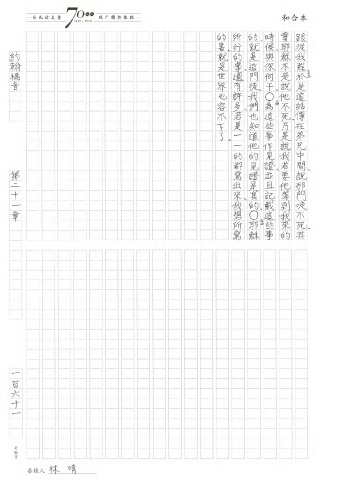 和合本
70
跟從我罷於是這話傳在弟兄中間說那門徒不死其
實耶穌不是說他不死乃是說我若要他等到我來的
時候與你何干○為這些事作見證並且記載這些事
的就是這門徒我們也知道他的見證是真的○耶穌
所行的事還有許多若是一一的都寫出來我想所寫
的書就是世界也容不下了
約翰福音 第二十一章 一百六十一
林 晴